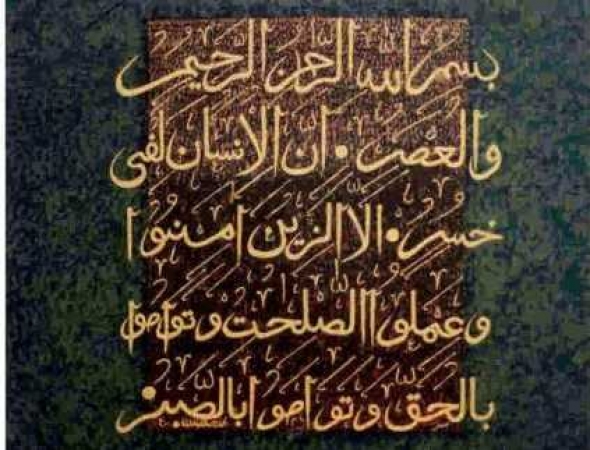 بسم الله الرحمن الرحيم
والعصر • ان الانسان لفى
خسر • الا الذين امنوا
وعملوا الصلحت وتواصوا
بالحق وتواصوا بالصبر •